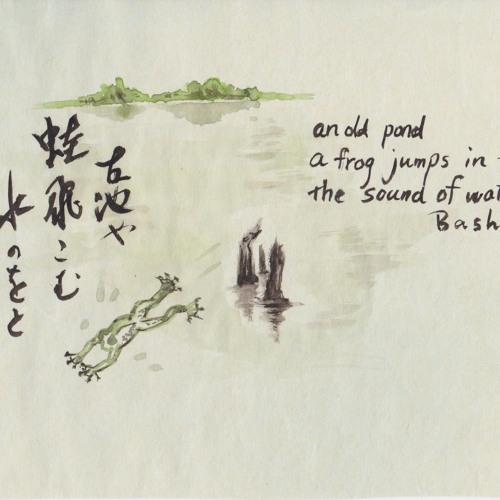 古池や
蛙飛こむ
水のをと
an old pond
a frog jumps in
the sound of wat
Bash